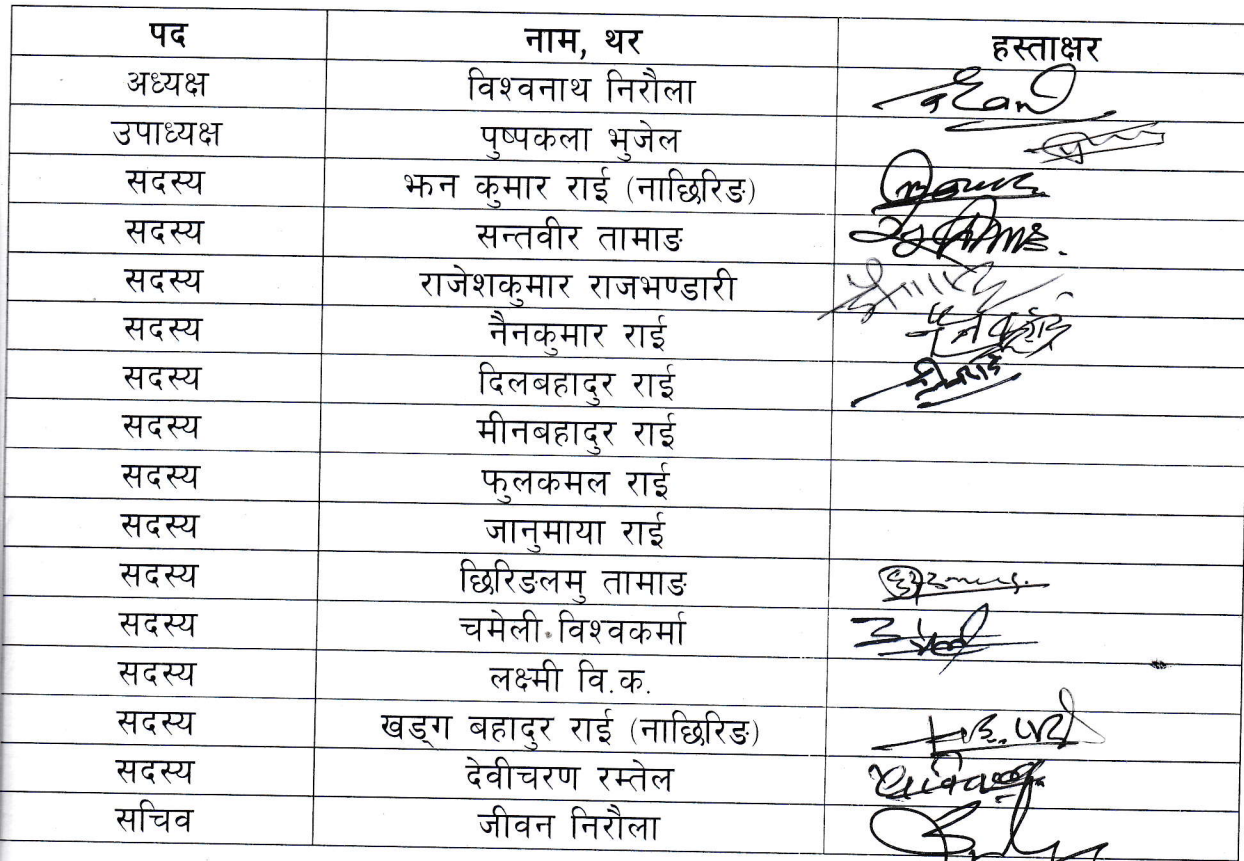 पद नाम, थर हस्ताक्षर
अध्यक्ष विश्वनाथ निरौला
उपाध्यक्ष पुष्पकला भुजेल
सदस्य झन कुमार राई (नाछिरिङ)
सदस्य सन्तवीर तामाङ
सदस्य राजेशकुमार राजभण्डारी
सदस्य नैनकुमार राई
सदस्य दिलबहादुर राई
सदस्य मीनबहादुर राई
सदस्य फुलकमल राई
सदस्य जानुमाया राई
सदस्य छिरिङलमु तामाङ
सदस्य चमेली विश्वकर्मा
सदस्य लक्ष्मी वि.क.
सदस्य खड्ग बहादुर राई (नाछिरिङ)
सदस्य देवीचरण रम्तेल
सचिव जीवन निरौला